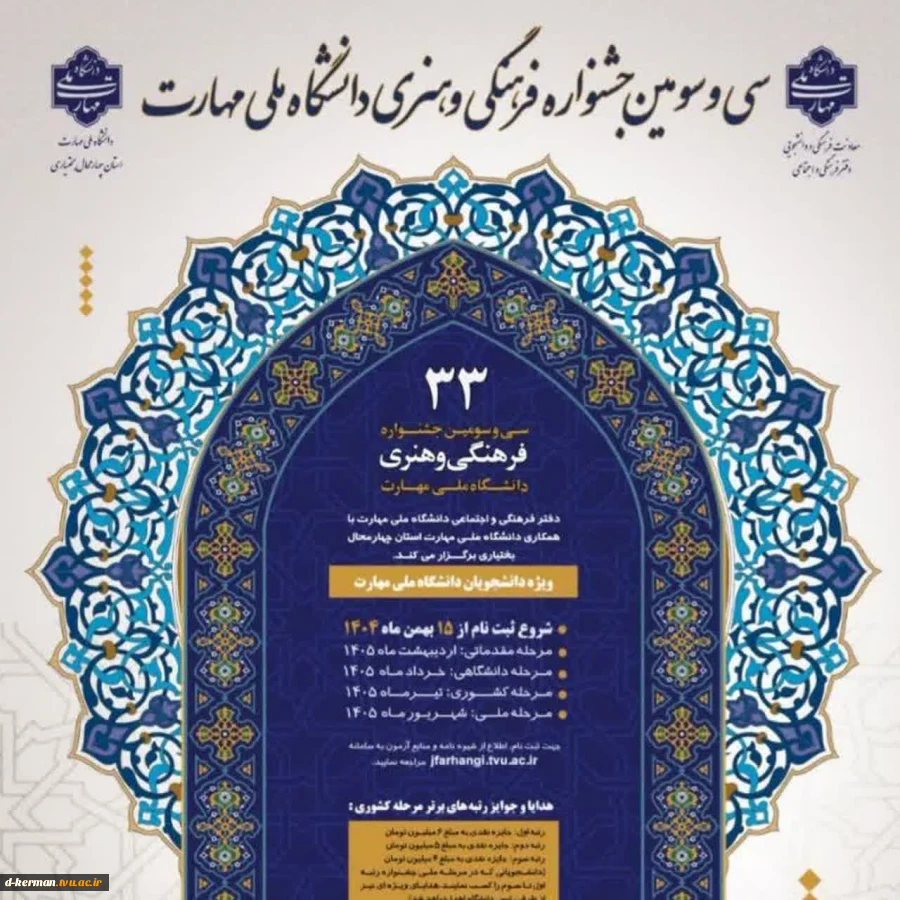 سی و سومین جشنواره فرهنگی و هنری دانشگاه ملی مهارت
دانشگاه ملی مهارت
معاونت فرهنگی و دانشجویی
دفتر فرهنگی و اجتماعی
دانشگاه ملی مهارت
دانشگاه ملی مهارت
استان چهارمحال و بختیاری
۳۳
سی و سومین جشنواره
فرهنگی و هنری
دانشگاه ملی مهارت
دفتر فرهنگی و اجتماعی دانشگاه ملی مهارت با
همکاری دانشگاه ملی مهارت استان چهارمحال
بختیاری برگزار می کند.
ویژه دانشجویان دانشگاه ملی مهارت
شروع ثبت نام از ۱۵ بهمن ماه ۱۴۰۴
مرحله مقدماتی: اردیبهشت ماه ۱۴۰۵
مرحله دانشگاهی: خرداد ماه ۱۴۰۵
مرحله کشوری: تیر ماه ۱۴۰۵
مرحله ملی: شهریور ماه ۱۴۰۵
جهت ثبت نام، اطلاع از شیوه نامه و منابع آزمون به سامانه
jfarhangi.tvu.ac.ir مراجعه نمایید.
هدایا و جوایز رتبه های برتر مرحله کشوری :
رتبه اول: جایزه نقدی به مبلغ ۶ میلیون تومان
رتبه دوم: جایزه نقدی به مبلغ ۵ میلیون تومان
رتبه سوم: جایزه نقدی به مبلغ ۴ میلیون تومان
(دانشجویانی که در مرحله ملی جشنواره رتبه
اول تا سوم را کسب نمایند، هدایای ویژه ای نیز
d-kerman.tvu.ac.ir